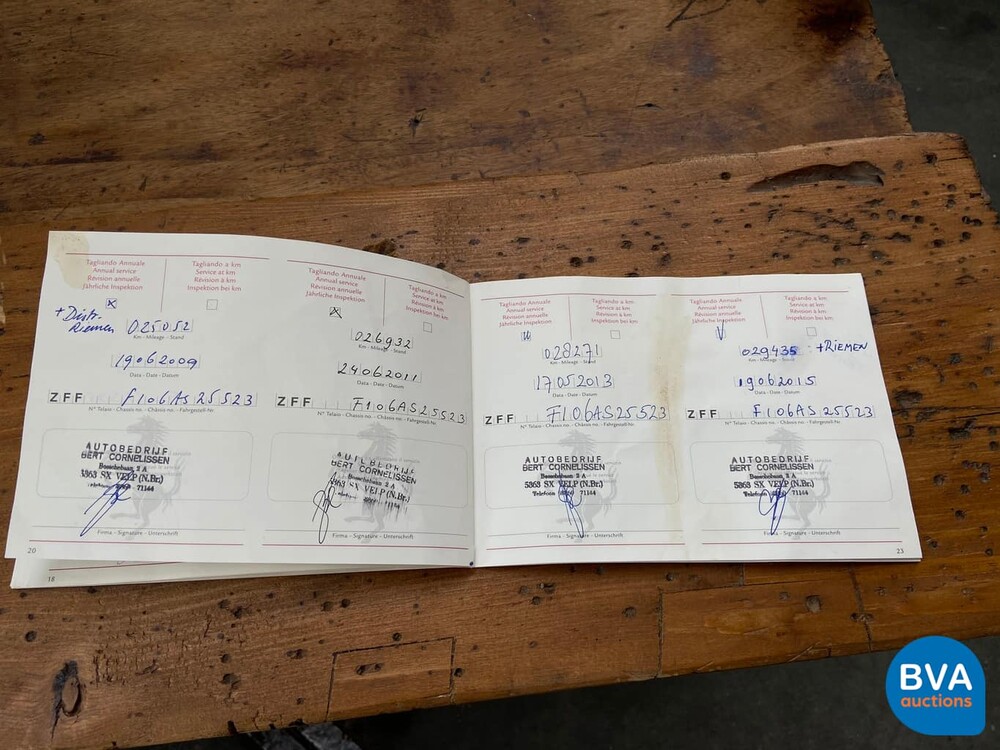 Tagliando Annuale
Annual service
Révision annuelle
Jährliche Inspektion
Tagliando a km
Service at km
Révision à km
Inspektion bei km
x
+ Distr-
Riemen
025052
Km - Mileage - Stand
19062009
Data - Date - Datum
ZFF F106AS25523
N° Telaio - Chassis no. - Châssis no. - Fahrgestell-Nr
AUTOBEDRIJF
BERT CORNELISSEN
Bosschebaan 2 A
5363 SX VELP (N.Br.)
71144
Firma - Signature - Unterschrift
20
18
Tagliando Annuale
Annual service
Révision annuelle
Jährliche Inspektion
Tagliando a km
Service at km
Révision à km
Inspektion bei km
x
026932
Km - Mileage - Stand
24062011
Data - Date - Datum
ZFF F106AS25523
N° Telaio - Chassis no. - Châssis no. - Fahrgestell-Nr
BERT CORNELISSEN
Bosschebaan 2 A
5363 SX VELP (N.Br.)
Firma - Signature - Unterschrift
Tagliando Annuale
Annual service
Révision annuelle
Jährliche Inspektion
Tagliando a km
Service at km
Révision à km
Inspektion bei km
028271
Km - Mileage - Stand
17052013
Data - Date - Datum
ZFF F106AS25523
N° Telaio - Chassis no. - Châssis no. - Fahrgestell-Nr
AUTOBEDRIJF
BERT CORNELISSEN
Bosschebaan 2 A
5363 SX VELP (N.Br.)
Telefoon 71144
Firma - Signature - Unterschrift
Tagliando Annuale
Annual service
Révision annuelle
Jährliche Inspektion
Tagliando a km
Service at km
Révision à km
Inspektion bei km
029435 +RIEMEN
Km - Mileage - Stand
19062015
Data - Date - Datum
ZFF F106AS25523
N° Telaio - Chassis no. - Châssis no. - Fahrgestell-Nr
AUTOBEDRIJF
BERT CORNELISSEN
Bosschebaan 2 A
5363 SX VELP (N.Br.)
Telefoon 71144
Firma - Signature - Unterschrift
23
BVA
auctions